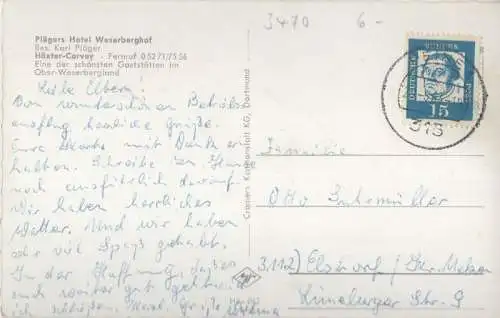 Plägers Hotel Weserberghof
Bes. Karl Pläger
Höxter-Corvey - Fernruf 0 52 71/75 56
Eine der schönsten Gaststätten im
Ober-Weserbergland
Liebe Eltern!
Von wunderschönen Betriebs
ausflug herzliche Grüße.
Eure Karte mit Dank er
halten. Schreibe zu Hause
noch ausführlich darauf.
Wir haben herrliches
Wetter. Und wir haben
sehr viel Spaß gehabt.
In der Hoffnung, daß es
euch weiter gut geht
ich schließen. Herzl. Grüße
Cramers Kunstanstalt KG, Dortmund
3470
6-
DEUTSCHE
15
313
Familie
Otto
3112) Kr. Uelzen
Lüneburger Str. 9